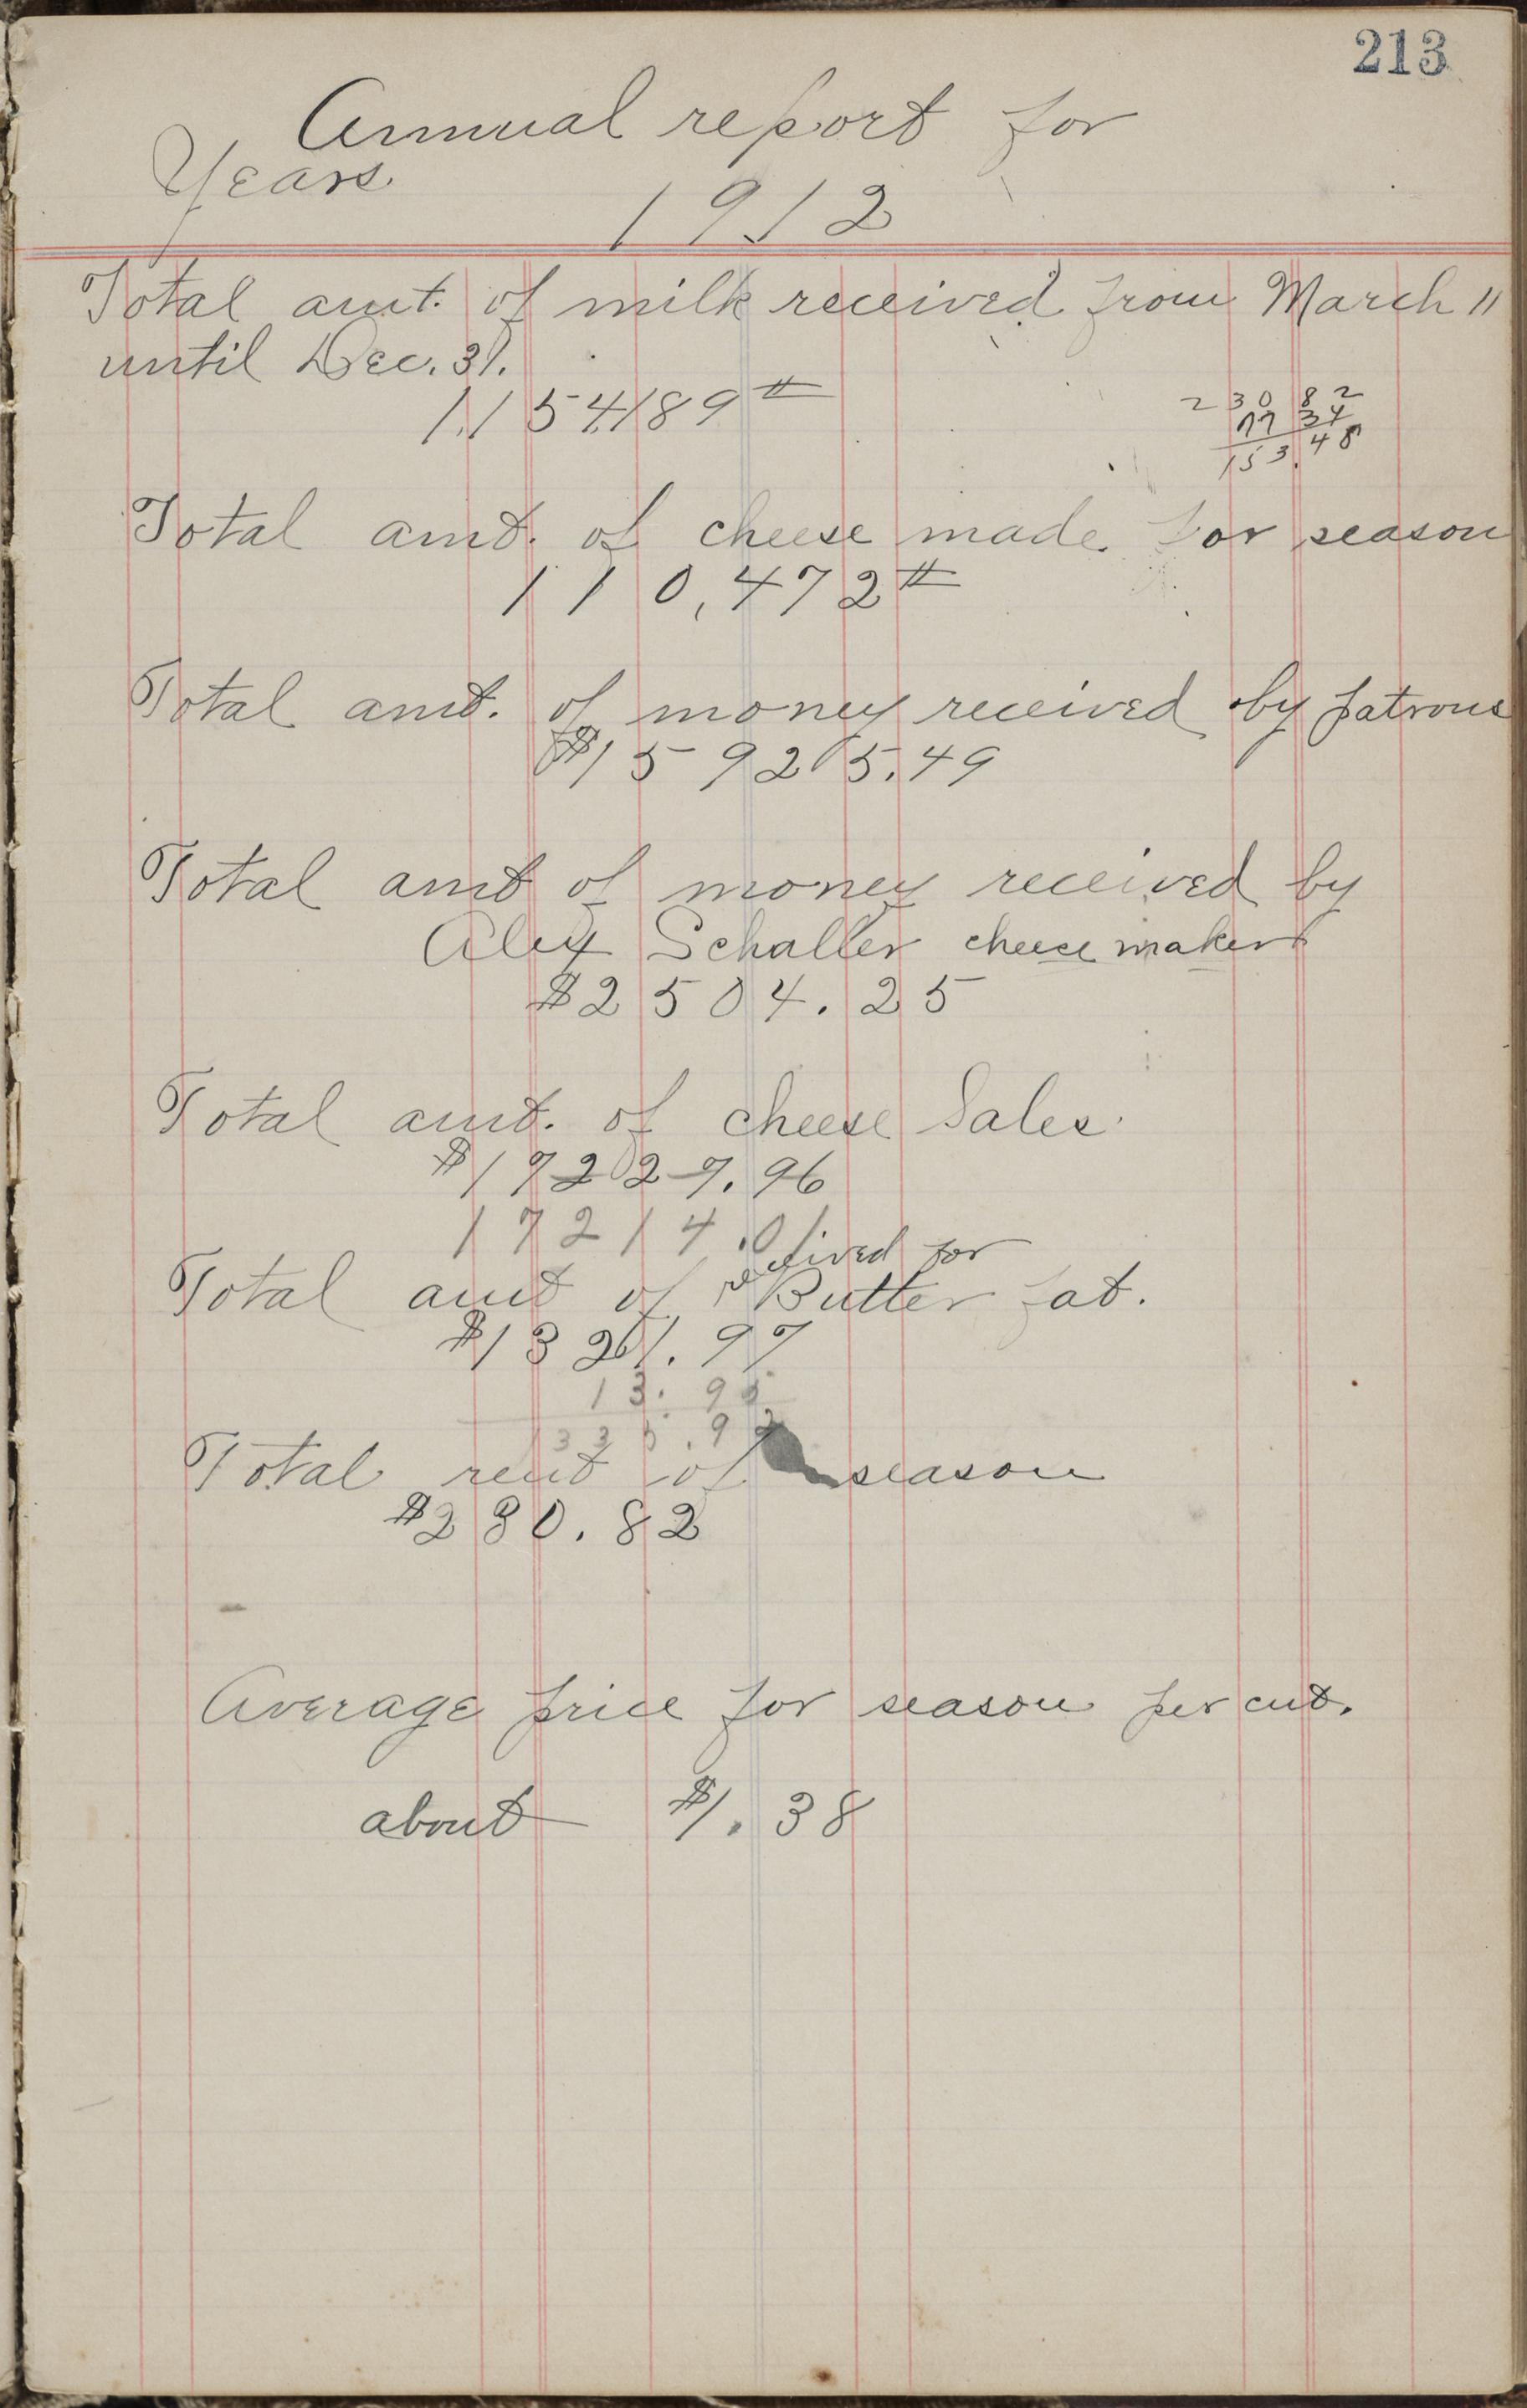 213
Annual report for
Years
1912
Total amt. of milk received from March 11
until Dec. 31.
1,154,189 #
230 82
77 34
153.48
Total amt. of cheese made for season
110,472 #
Total amt. of money received by patrons
$15925.49
Total amt of money received by
Alex Schaller cheese maker
$2504.25
Total amt. of cheese Sales.
$17227.96
17214.01
received for
Total amt of Butter fat.
$1321.97
13.95
1335.92
Total rent of season
$230.82
Average price for season per cwt.
about $1.38